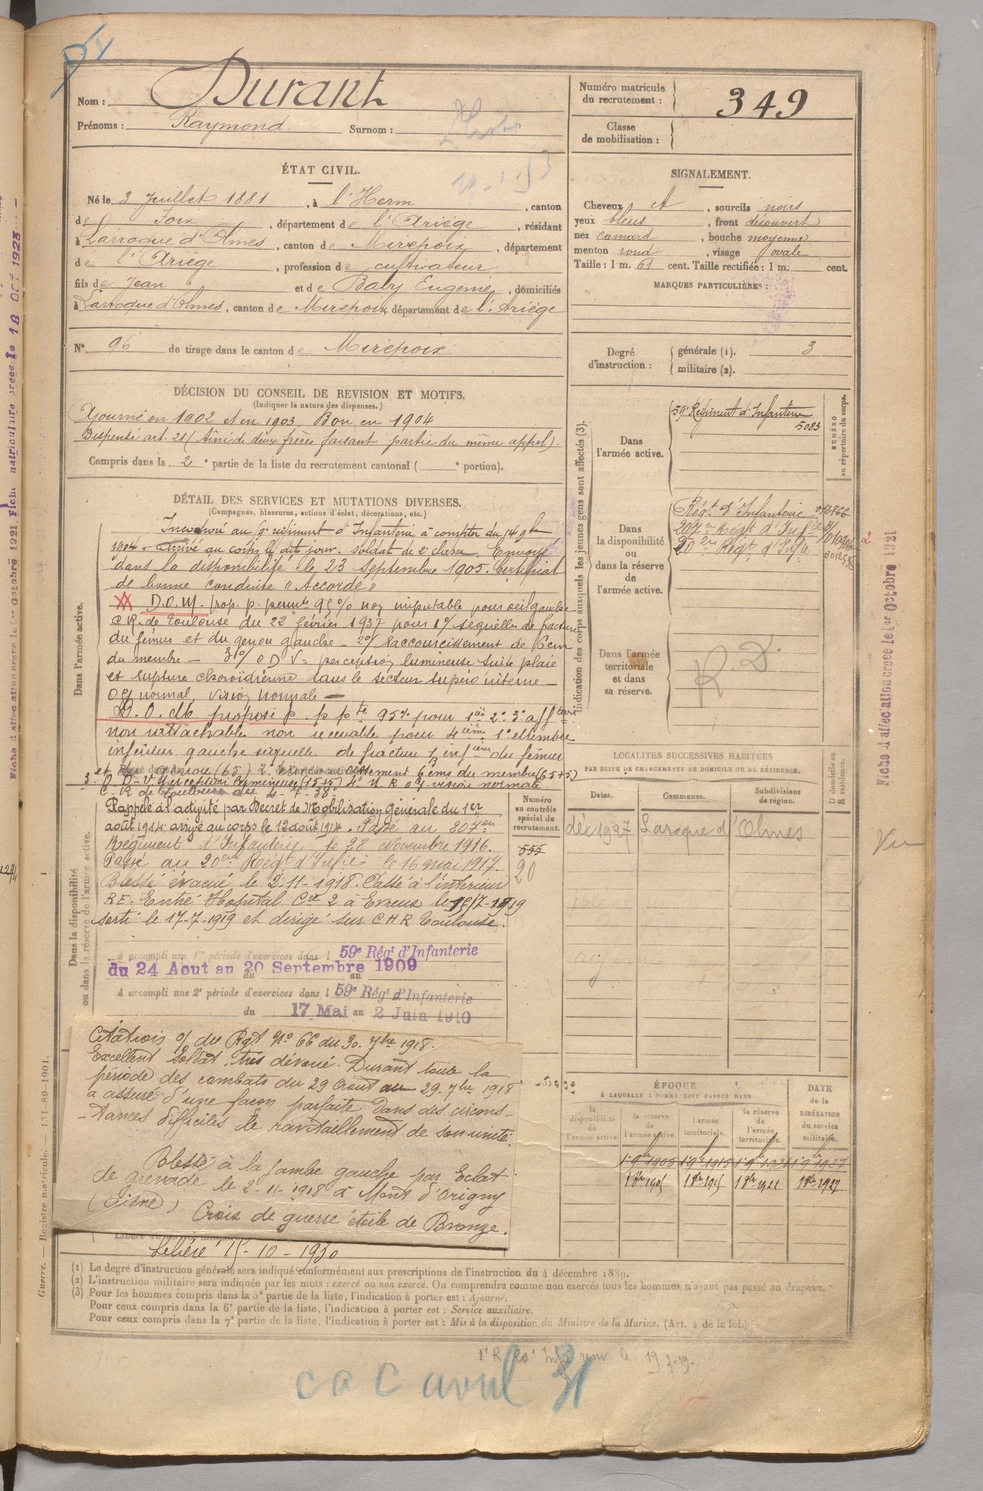 Nom : Durant
Prénoms : Raymond Surnom :
Numéro matricule du recrutement : 349
Classe de mobilisation :
ÉTAT CIVIL.
Né le 3 Juillet 1881, à l'Herm, canton
de Foix, département de l'Ariège, résidant
à Larroque d'Olmes, canton de Mirepoix, département
de l'Ariège, profession de cultivateur
fils de Jean et de Baby Eugénie, domiciliés
à Larroque d'Olmes, canton de Mirepoix, département de l'Ariège
N° 96 de tirage dans le canton de Mirepoix
SIGNALEMENT.
Cheveux ct, sourcils noirs
yeux bleus, front découvert
nez camard, bouche moyenne
menton rond, visage ovale
Taille : 1 m. 61 cent. Taille rectifiée : 1 m. cent.
MARQUES PARTICULIÈRES :
Degré d'instruction : générale (1). 3
militaire (2).
DÉCISION DU CONSEIL DE REVISION ET MOTIFS.
(Indiquer la nature des dispenses.)
Ajourné en 1902 et en 1903 Bon en 1904
Dispensé art. 21 (Aîné de deux frères faisant partie du même appel).
Compris dans la 2e partie de la liste du recrutement cantonal ( e portion).
DÉTAIL DES SERVICES ET MUTATIONS DIVERSES.
(Campagnes, blessures, actions d'éclat, décorations, etc.)
Dans l'armée active.
Incorporé au régiment d'Infanterie à compter du 14 9bre
1904 arrivé au corps le dit jour. Soldat de 2e classe. Envoyé
dans la disponibilité le 23 Septembre 1905. Certificat
de bonne conduite "Accordé"
D.O.M. prop. p. permte 95% non imputable pour œil gauche
C.R. de Toulouse du 22 février 1937 pour 1° séquelles de fracture
du fémur et du genou gauche - 2°/ Raccourcissement de 6cm
du membre - 3°/ O D V = perception lumineuse suite plaie
et rupture choroïdienne dans le secteur supéro interne -
OG normal, vision normale -
D.O.M proposé p. p pte 95% pour 1° 2° 3° aff
non rattachable non recevable pour 4ième 1° membre
inférieur gauche séquelle de fracture inf du fémur
et du genou (65) 2° raccourcissement 6 cme du membre (65+5)
3° O D = V perception lumineuse (15+5) 4° N. R. O G vision normale.
C. R. de Toulouse du 4-7-38.
Dans la disponibilité ou dans la réserve de l'armée active.
Rappelé à l'activité par Décret de Mobilisation générale du 1er
août 1914 arrivé au corps le 12 août 1914. Passé au 207e
Régiment d'Infanterie le 28 Novembre 1916.
Passé au 20e Régt d'Infie le 16 mai 1917.
Blessé évacué le 2-11-1918. Passé à l'intérieur
R.E. Entré Hôpital Cre 2 à Evreux le 1919
sorti le 17-7-1919 et dirigé sur C H R Toulouse.
A accompli une 1re période d'exercices dans l 59e Rég' d'Infanterie
du 24 Aout au 20 Septembre 1909
A accompli une 2e période d'exercices dans l 59e Rég' d'Infanterie
du 17 Mai au 2 Juin 1910
Citation o/ du Régt N° 66 du 30. 7bre 1918.
Excellent Soldat. très dévoué. Durant toute la
période des combats du 29 Aout au 29. 7bre 1918
a assuré d'une façon parfaite dans des circons-
-tances difficiles le ravitaillement de son unité.
Blessé à la jambe gauche par Eclat
de grenade le 2-11-1918 à Mont d'Origny
(Aisne) Croix de guerre étoile de Bronze.
Libéré 15-10-1930
Indication des corps auxquels les jeunes gens sont affectés (3).
Dans l'armée active.
59e Régiment d'Infanterie
5083
NUMÉRO au répertoire du corps.
Dans la disponibilité ou dans la réserve de l'armée active.
Régt d'Infanterie
207e Régt d'Infie
20e Régt d'Infie
Dans l'armée territoriale et dans sa réserve.
R D.
Numéro au contrôle spécial du recrutement.
555
20
LOCALITÉS SUCCESSIVES HABITÉES
PAR SUITE DE CHANGEMENTS DE DOMICILE OU DE RÉSIDENCE.
Dates. Communes. Subdivisions de région. D domicile ou R résidence.
déc 1927 Laroque d'Olmes
Vu
ÉPOQUE
À LAQUELLE L'HOMME DOIT PASSER DANS
la disponibilité de l'armée active. la réserve de l'armée active. l'armée territoriale. la réserve de l'armée territoriale.
DATE de la LIBÉRATION du service militaire.
1er 9e 1905 1er 9e 1915 1er 9e 1921 1er 9e 1927
1er 8bre 1905 1er 8bre 1915 1er 8bre 1921 1er 8bre 1927
(1) Le degré d'instruction générale sera indiqué conformément aux prescriptions de l'instruction du 4 décembre 1889.
(2) L'instruction militaire sera indiquée par les mots : exercé ou non exercé. On comprendra comme non exercés tous les hommes n'ayant pas passé au drapeau.
(3) Pour les hommes compris dans la 5e partie de la liste, l'indication à porter est : Ajourné.
Pour ceux compris dans la 6e partie de la liste, l'indication à porter est : Service auxiliaire.
Pour ceux compris dans la 7e partie de la liste, l'indication à porter est : Mis à la disposition du Ministre de la Marine. (Art. 4 de la loi.)
Guerre. — Registre matricule. — 131-89-1901.
Fiche d'affectation créée le 1er Octobre 1921
c a c avril 31